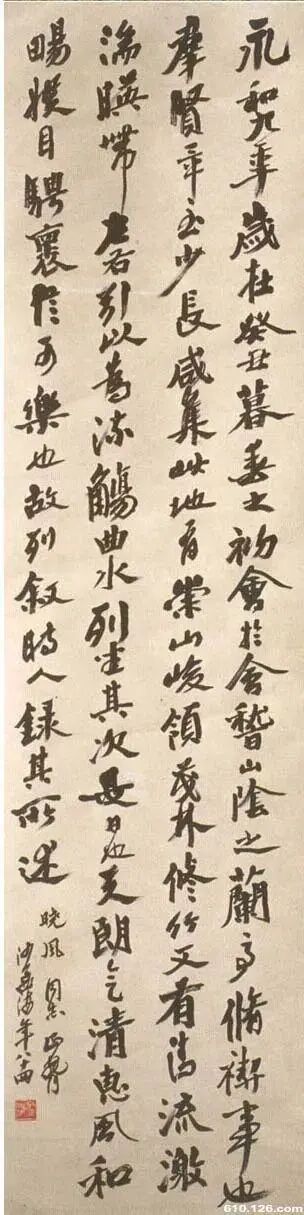 永和九年歲在癸丑暮春之初會於會稽山陰之蘭亭脩禊事也
羣賢畢至少長咸集此地有崇山峻領茂林修竹又有清流激
湍暎帶左右引以為流觴曲水列坐其次是日也天朗氣清惠風和
暢娛目騁褱信可樂也故列敘時人錄其所述
曉風同志正
沙孟海年八十
610.126.com